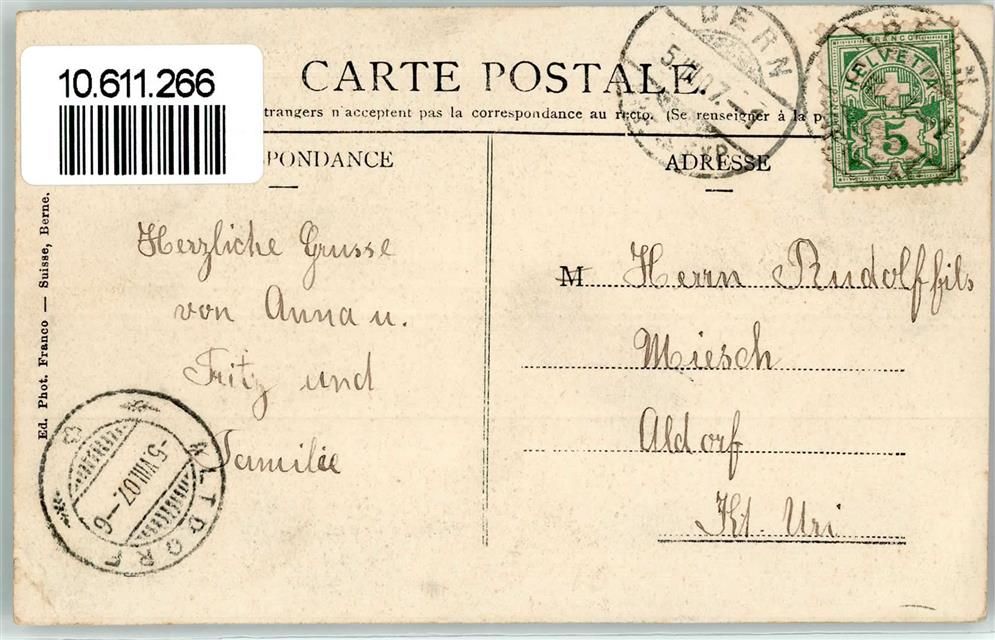 10.611.266
CARTE POSTALE.
trangers n'acceptent pas la correspondance au recto. (Se renseigner à la p
PONDANCE
ADRESSE
Herzliche Grusse
von Anna u.
Fritz und
Familie
M Herrn Rudolf fils
Miesch
Aldorf
Kt. Uri
Ed. Phot. Franco — Suisse, Berne.
ALTDORF
-5.VIII.07.-6
BERN
FRANCO
HELVETIA
5